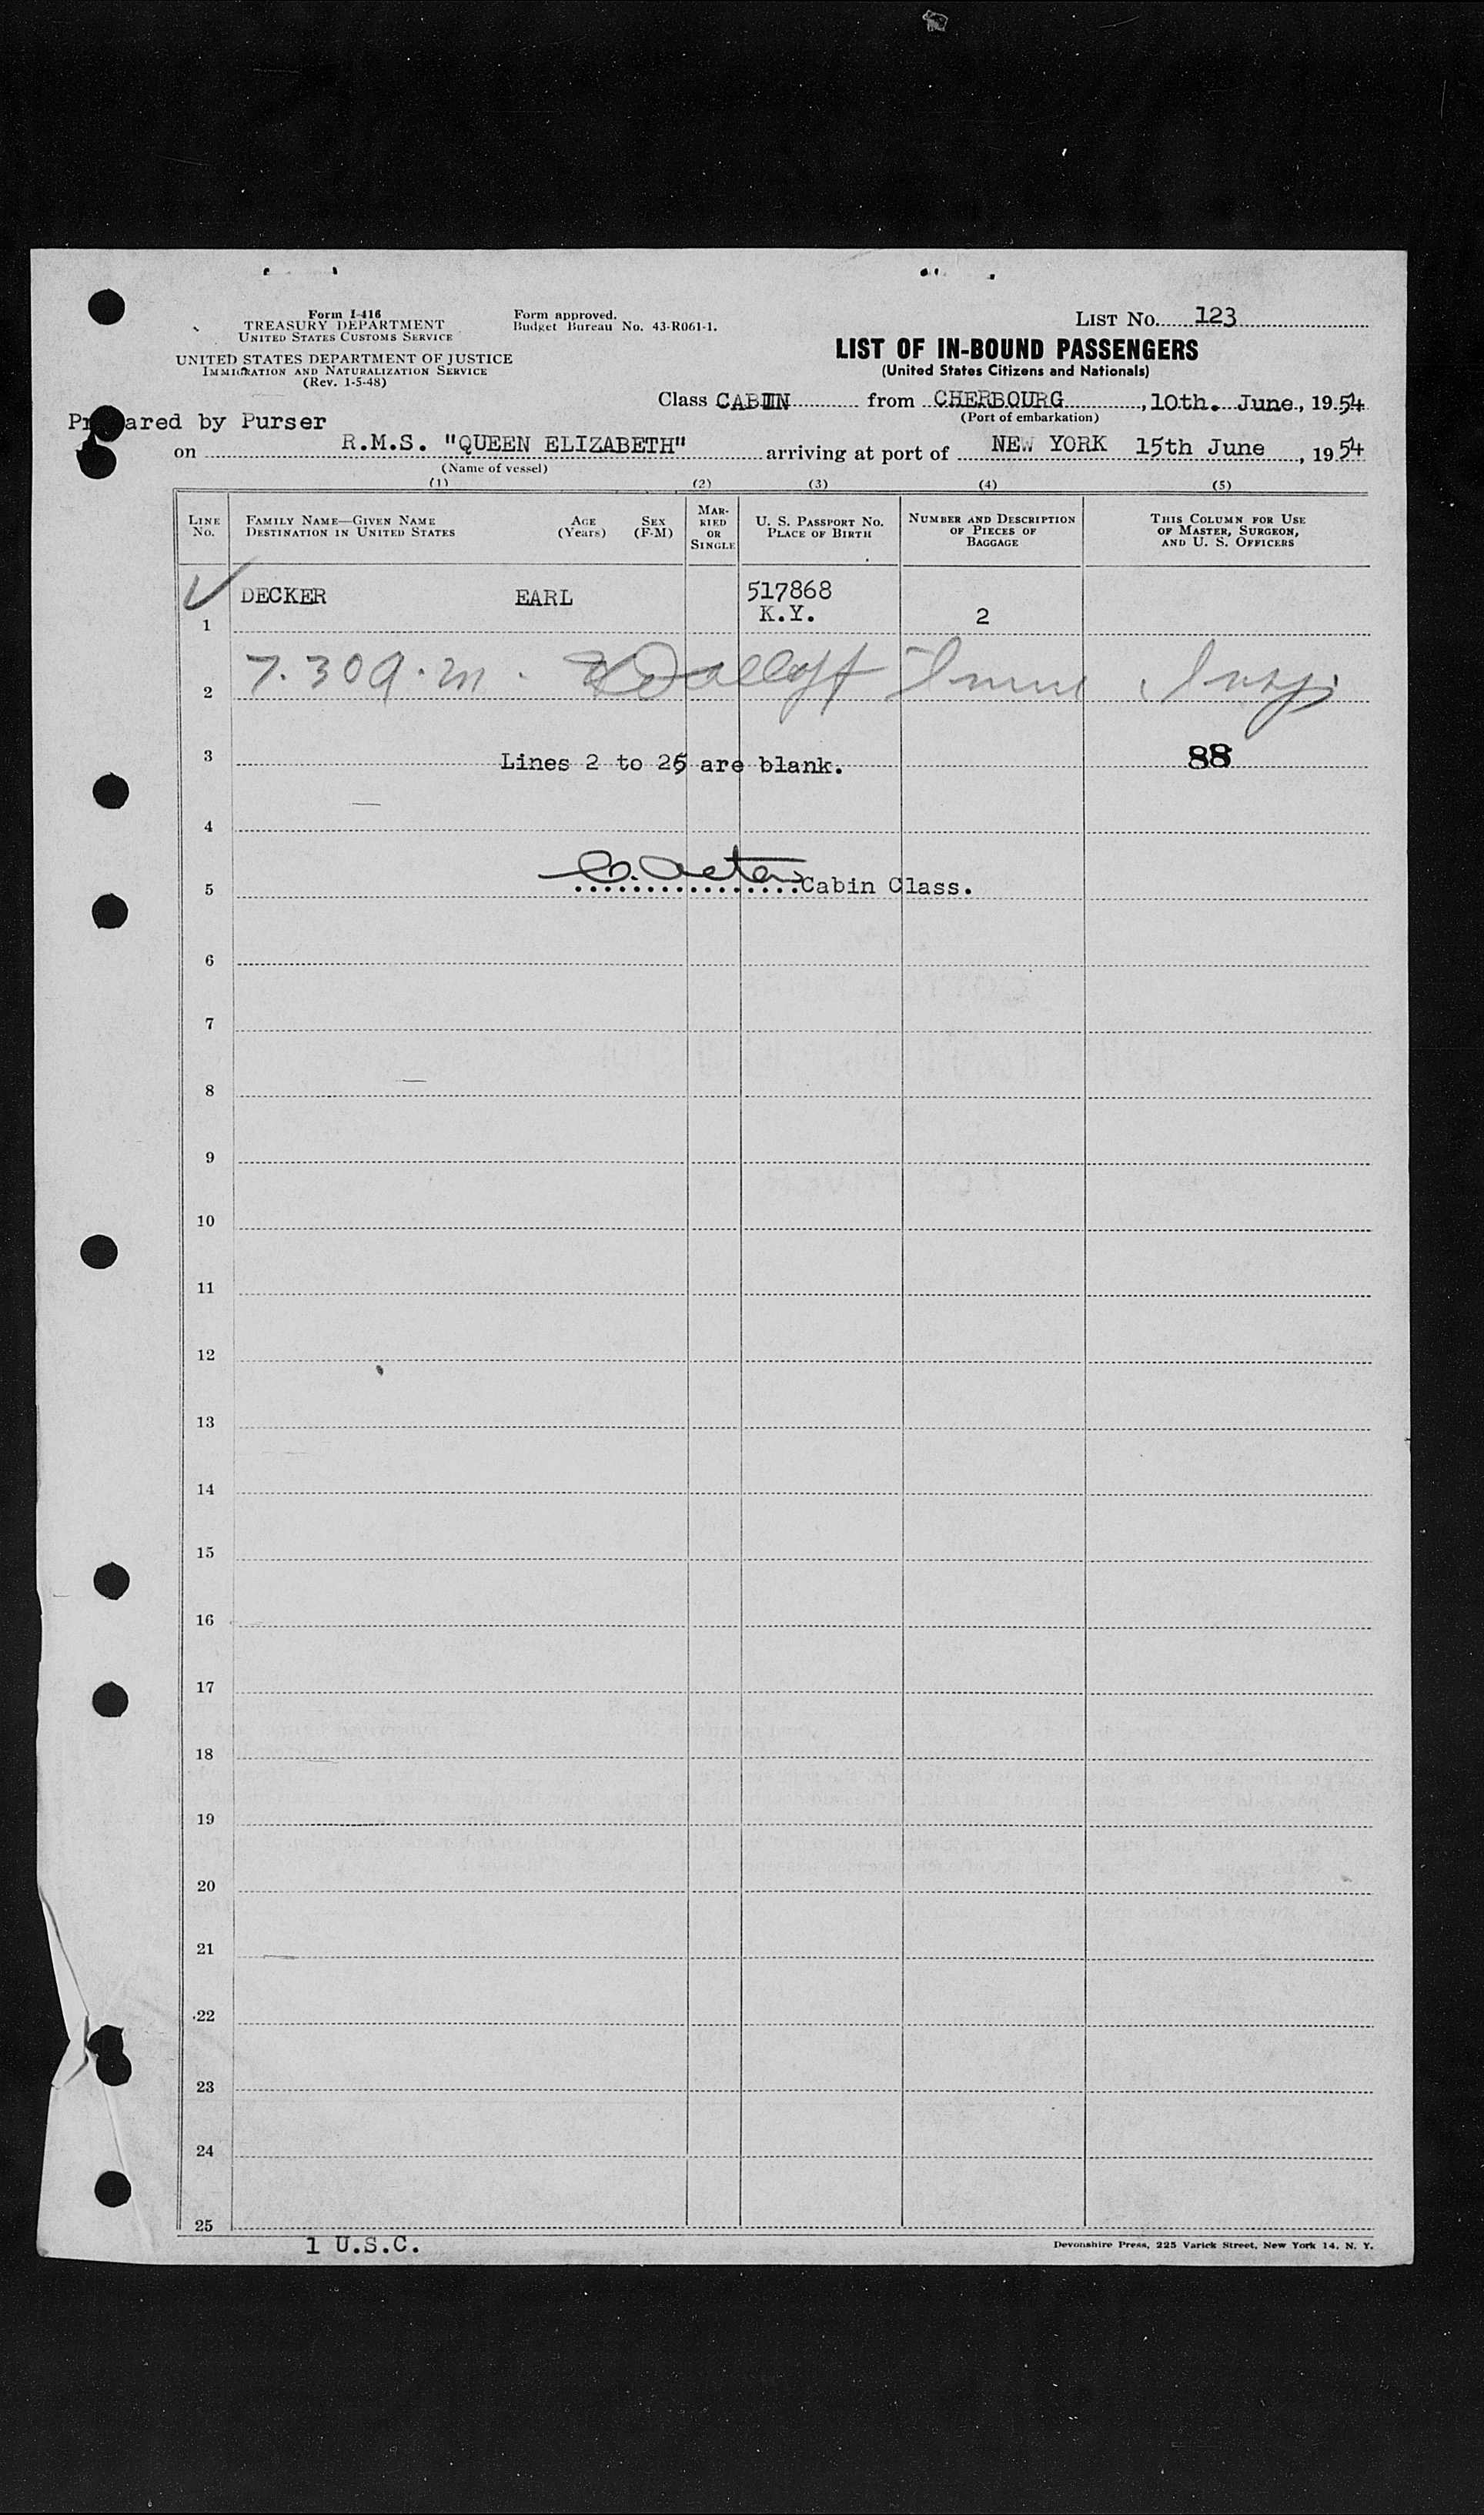 Form I-416
TREASURY DEPARTMENT
UNITED STATES CUSTOMS SERVICE
UNITED STATES DEPARTMENT OF JUSTICE
IMMIGRATION AND NATURALIZATION SERVICE
(Rev. 1-5-48)
Form approved.
Budget Bureau No. 43-R061-1.
LIST No. 123
LIST OF IN-BOUND PASSENGERS
(United States Citizens and Nationals)
Class CABIN from CHERBOURG, 10th. June, 1954
(Port of embarkation)
Prepared by Purser
on R.M.S. "QUEEN ELIZABETH" arriving at port of NEW YORK 15th June, 1954
(Name of vessel)
(1) (2) (3) (4) (5)
LINE No.
FAMILY NAME—GIVEN NAME
DESTINATION IN UNITED STATES
AGE (Years)
SEX (F-M)
MARRIED OR SINGLE
U. S. PASSPORT NO.
PLACE OF BIRTH
NUMBER AND DESCRIPTION OF PIECES OF BAGGAGE
THIS COLUMN FOR USE OF MASTER, SURGEON, AND U. S. OFFICERS
1 DECKER EARL 517868
K.Y. 2
2 7.30 a.m.
3 Lines 2 to 25 are blank. 88
4
5 Cabin Class.
6
7
8
9
10
11
12
13
14
15
16
17
18
19
20
21
22
23
24
25
1 U.S.C.
Devonshire Press, 225 Varick Street, New York 14, N. Y.